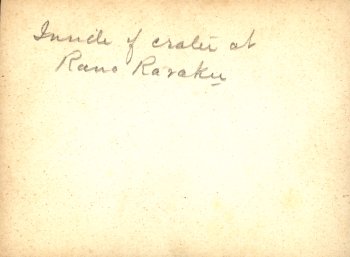 Inside of crater at
Rano Raraku